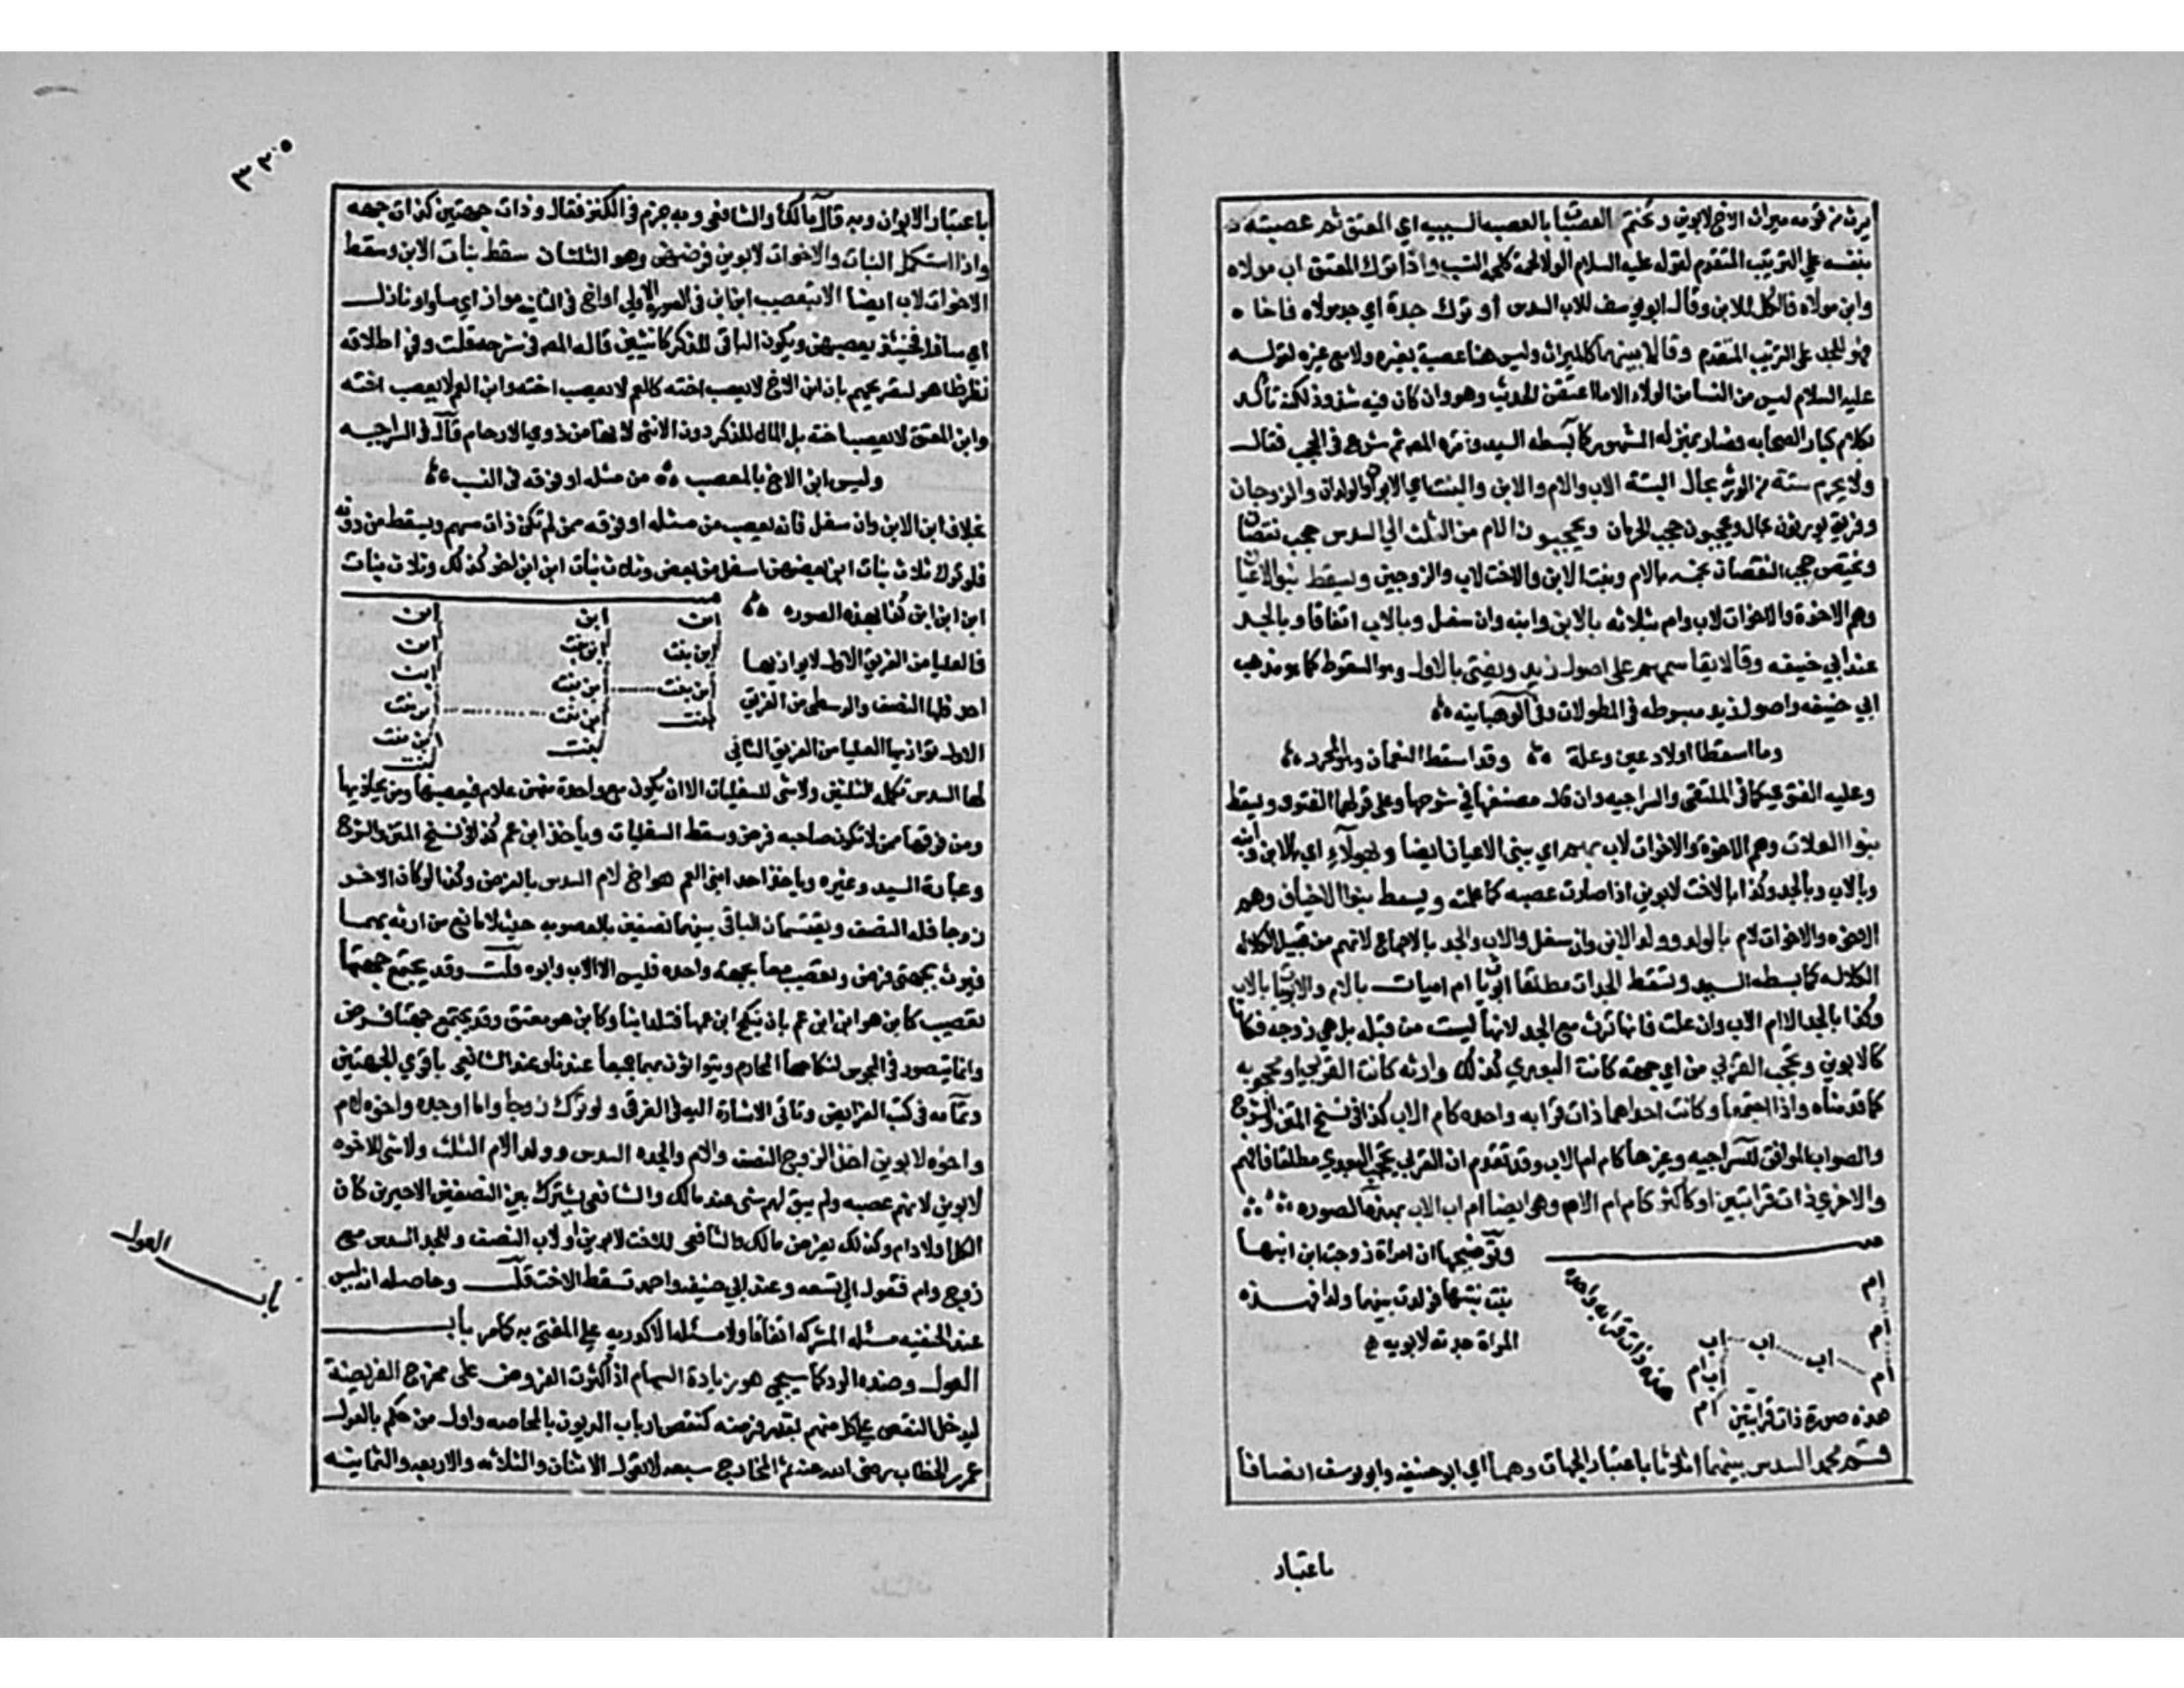 يرث من قومه ميراث الاخ لابوين وتختم العصبات بالعصبه السببيه اي المعتق ثم عصبته
بنفسه علي الترتيب المتقدم لقوله عليه السلام الولا لحمة كلحمة النسب واذا ترك المعتق اب مولاه
وابن مولاه فالكل للابن وقال ابو يوسف للاب السدس او ترك جدة اي جد مولاه فاخاه
فهو للجد علي الترتيب المتقدم وقالا بينهما كالميراث وليس هنا عصبة بغيره ولا مع غيره لقوله
عليه السلام ليس من النسا من الولاء الا ما اعتقن الحديث وهو وان كان فيه شذوذ لكنه تأكد
بكلام كبار الصحابه فصار بمنزله المشهور كما بسطه السيد واقره المص ثم شرع في الحجب فقال
ولا يحرم ستة من الورثه بحال البتة الاب والام والابن والبنت اي الابوان والولدان والزوجان
وفريق يرثون بحال ويحجبون حجب الحرمان ويحجبون الام من الثلث الي السدس حجب نقصان
ويختص حجب النقصان بخمسه بالام وبنت الابن والاخت لاب والزوجين ويسقط بنو الاعيان
وهم الاخوة والاخوات لاب وام بثلاثه بالابن وابنه وان سفل وبالاب اتفاقا وبالجد
عند ابي حنيفه وقالا يقاسمهم على اصول زيد ويفتى بالاول وهو السقوط كما هو مذهب
ابي حنيفه واصول زيد مبسوطه في المطولات وفي الوهبانيه
وما اسقطا اولاد عين وعلة وقد اسقط النعمان وهو المحرر
وعليه الفتوى كما في الملتقى والسراجيه وان قال مصنفها في شرحها وعلى قولهما الفتوى ويسقط
بنوا العلات وهم الاخوة والاخوات لاب بهم اي ببني الاعيان ايضا وبهولاء اي بالابن وابنه
وبالاب وبالجد وكذا بالاخت لابوين اذا صارت عصبه كما علمت ويسقط بنوا الاخياف وهم
الاخوه والاخوات لام بالولد وولد الابن وان سفل والاب والجد بالاجماع لانهم من قبيل الكلاله
الكلاله كما بسطه السيد وتسقط الجدات مطلقا ابويات ام اميات بالام والابويات بالاب
وكذا بالجد الا ام الاب وان علت فانها ترث مع الجد لانها ليست من قبله بل هي زوجه فكانا
كالابوين وتحجب القربي من اي جهة كانت البعدي كذلك وارثه كانت القربي او محجوبه
كما قدمناه واذا اجتمعا وكانت احداهما ذات قرابه واحده كام الاب كذا في نسخ المتن والشرح
والصواب الموافق للسراجيه وغيرها كام ام الاب وقد تقدم ان القربي تحجب البعدي مطلقا فافهم
والاخري ذات قرابتين او اكثر كام ام الام وهي ايضا ام اب الاب بهذه الصوره
وتوضيحها ان امراة زوجت ابن ابنها
بنت بنتها فولدت بينهما ولد فهذه
المراة جدته لابويه
ام
ام
ام اب اب اب
اب ام
ام
هذه ذات قرابه واحدة
هذه صورة ذات قرابتين
قسم محمد السدس بينهما اثلاثا باعتبار الجهات وهما اي ابو حنيفه وابو يوسف انصافا
باعتبار
٣٢٠
باعتبار الابدان وبه قال مالك والشافعي وبه جزم في الكنز فقال وذات جهتين كذات جهه
واذا استكمل البنات والاخوات لابوين فرضهن وهو الثلثان سقط بنات الابن وسقط
الاخوات لاب ايضا الا بتعصيب ابن ابن في الصورة الاولى او اخ في الثانيه مواز اي مساو او نازل
اي سافل فحينئذ يعصبهن ويكون الباقي للذكر كانثيين قاله المص في شرحه قلت وفي اطلاقه
نظر ظاهر لتصريحهم بان ابن الاخ لا يعصب اخته كالعم لا يعصب اخته وابن العم لا يعصب اخته
وابن المعتق لا يعصب اخته بل المال للذكر دون الانثى لانها من ذوي الارحام قال في الراجبيه
وليس ابن الاخ بالمعصب من مثله او فوقه في النسب
بخلاف ابن الابن وان سفل فانه يعصب من مثله او فوقه ممن لم تكن ذات سهم ويسقط من دونه
فلو ترك ثلاث بنات ابن بعضهن اسفل من بعض وثلاث بنات ابن ابن اخر كذلك وثلاث بنات
ابن ابن ابن كذا بهذه الصوره
ابن ابن ابن
ابن بنت ابن بنت ابن
ابن بنت ابن بنت ابن
بنت ابن بنت ابن بنت
بنت ابن بنت
بنت
فالعليا من الفريق الاول لا يوازيها
احد فلها النصف والوسطى من الفريق
الاول توازيها العليا من الفريق الثاني
لها السدس تكملة للثلثين ولا شى للسفليات الا ان يكون مع واحدة منهن غلام فيعصبها ومن يحاذيها
ومن فوقها ممن لا تكون صاحبه فرض وسقط السفليات وياخذ ابن عم كذا في نسخ المتن والشرح
وعبارة السيد وغيره وياخذ احد ابني العم هو اخ لام السدس بالفرض وكذا لو كان الاخر
زوجا فله النصف ويقتسمان الباقي بينهما نصفين بالعصوبه حيث لا مانع من ارثه بهما
فيرث بجهتي فرض وتعصيب معا بجهة واحده فليس الا الاب وابوه قلت وقد يجتمع جهتا
تعصيب كابن هو ابن ابن عم بان تنكح ابن عمها فتلد ابنا وكابن هو معتق وقد يجتمع جهتا فرض
وانما يتصور في المجوس لنكاحهم المحارم ويتوارثون بهما جميعا عندنا وعند الشافعي باقوي الجهتين
وتمامه في كتب الفرايض وتاتى الاشارة اليه في الغرقى ولو ترك زوجا واما او جده واخوه لام
واخوه لابوين اخذ الزوج النصف والام والجده السدس وولد الام الثلث ولا شى للاخوه
لابوين لانهم عصبه ولم يبق لهم شى عند مالك والشافعي يشترك بين الصنفين الاخيرين كان
الكل اولاد ام وكذلك يفرض مالك والشافعي للاخت لابوين او لاب النصف وللجد السدس مع
زوج وام فتعول الي تسعه وعند ابي حنيفه واحمد تسقط الاخت قلت وحاصله انه ليس
عند الحنفيه مسئله المشركه اتفاقا ولا مسئله الاكدريه علي المفتى به كما مر باب
العول وضده الرد كما سيجي هو زيادة السهام اذا كثرت الفروض على مخرج الفريضة
ليدخل النقص علي كل منهم بقدر فرضه كنقص ارباب الديون بالمحاصه واول من حكم بالعول
عمر بن الخطاب رضي الله عنه ثم المخارج سبعه لا تعول الاثنان والثلاثه والاربعه والثمانيه
باب العول